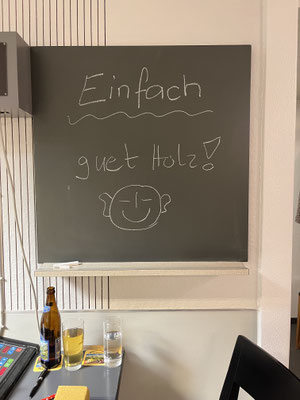 Einfach
guet Holz!